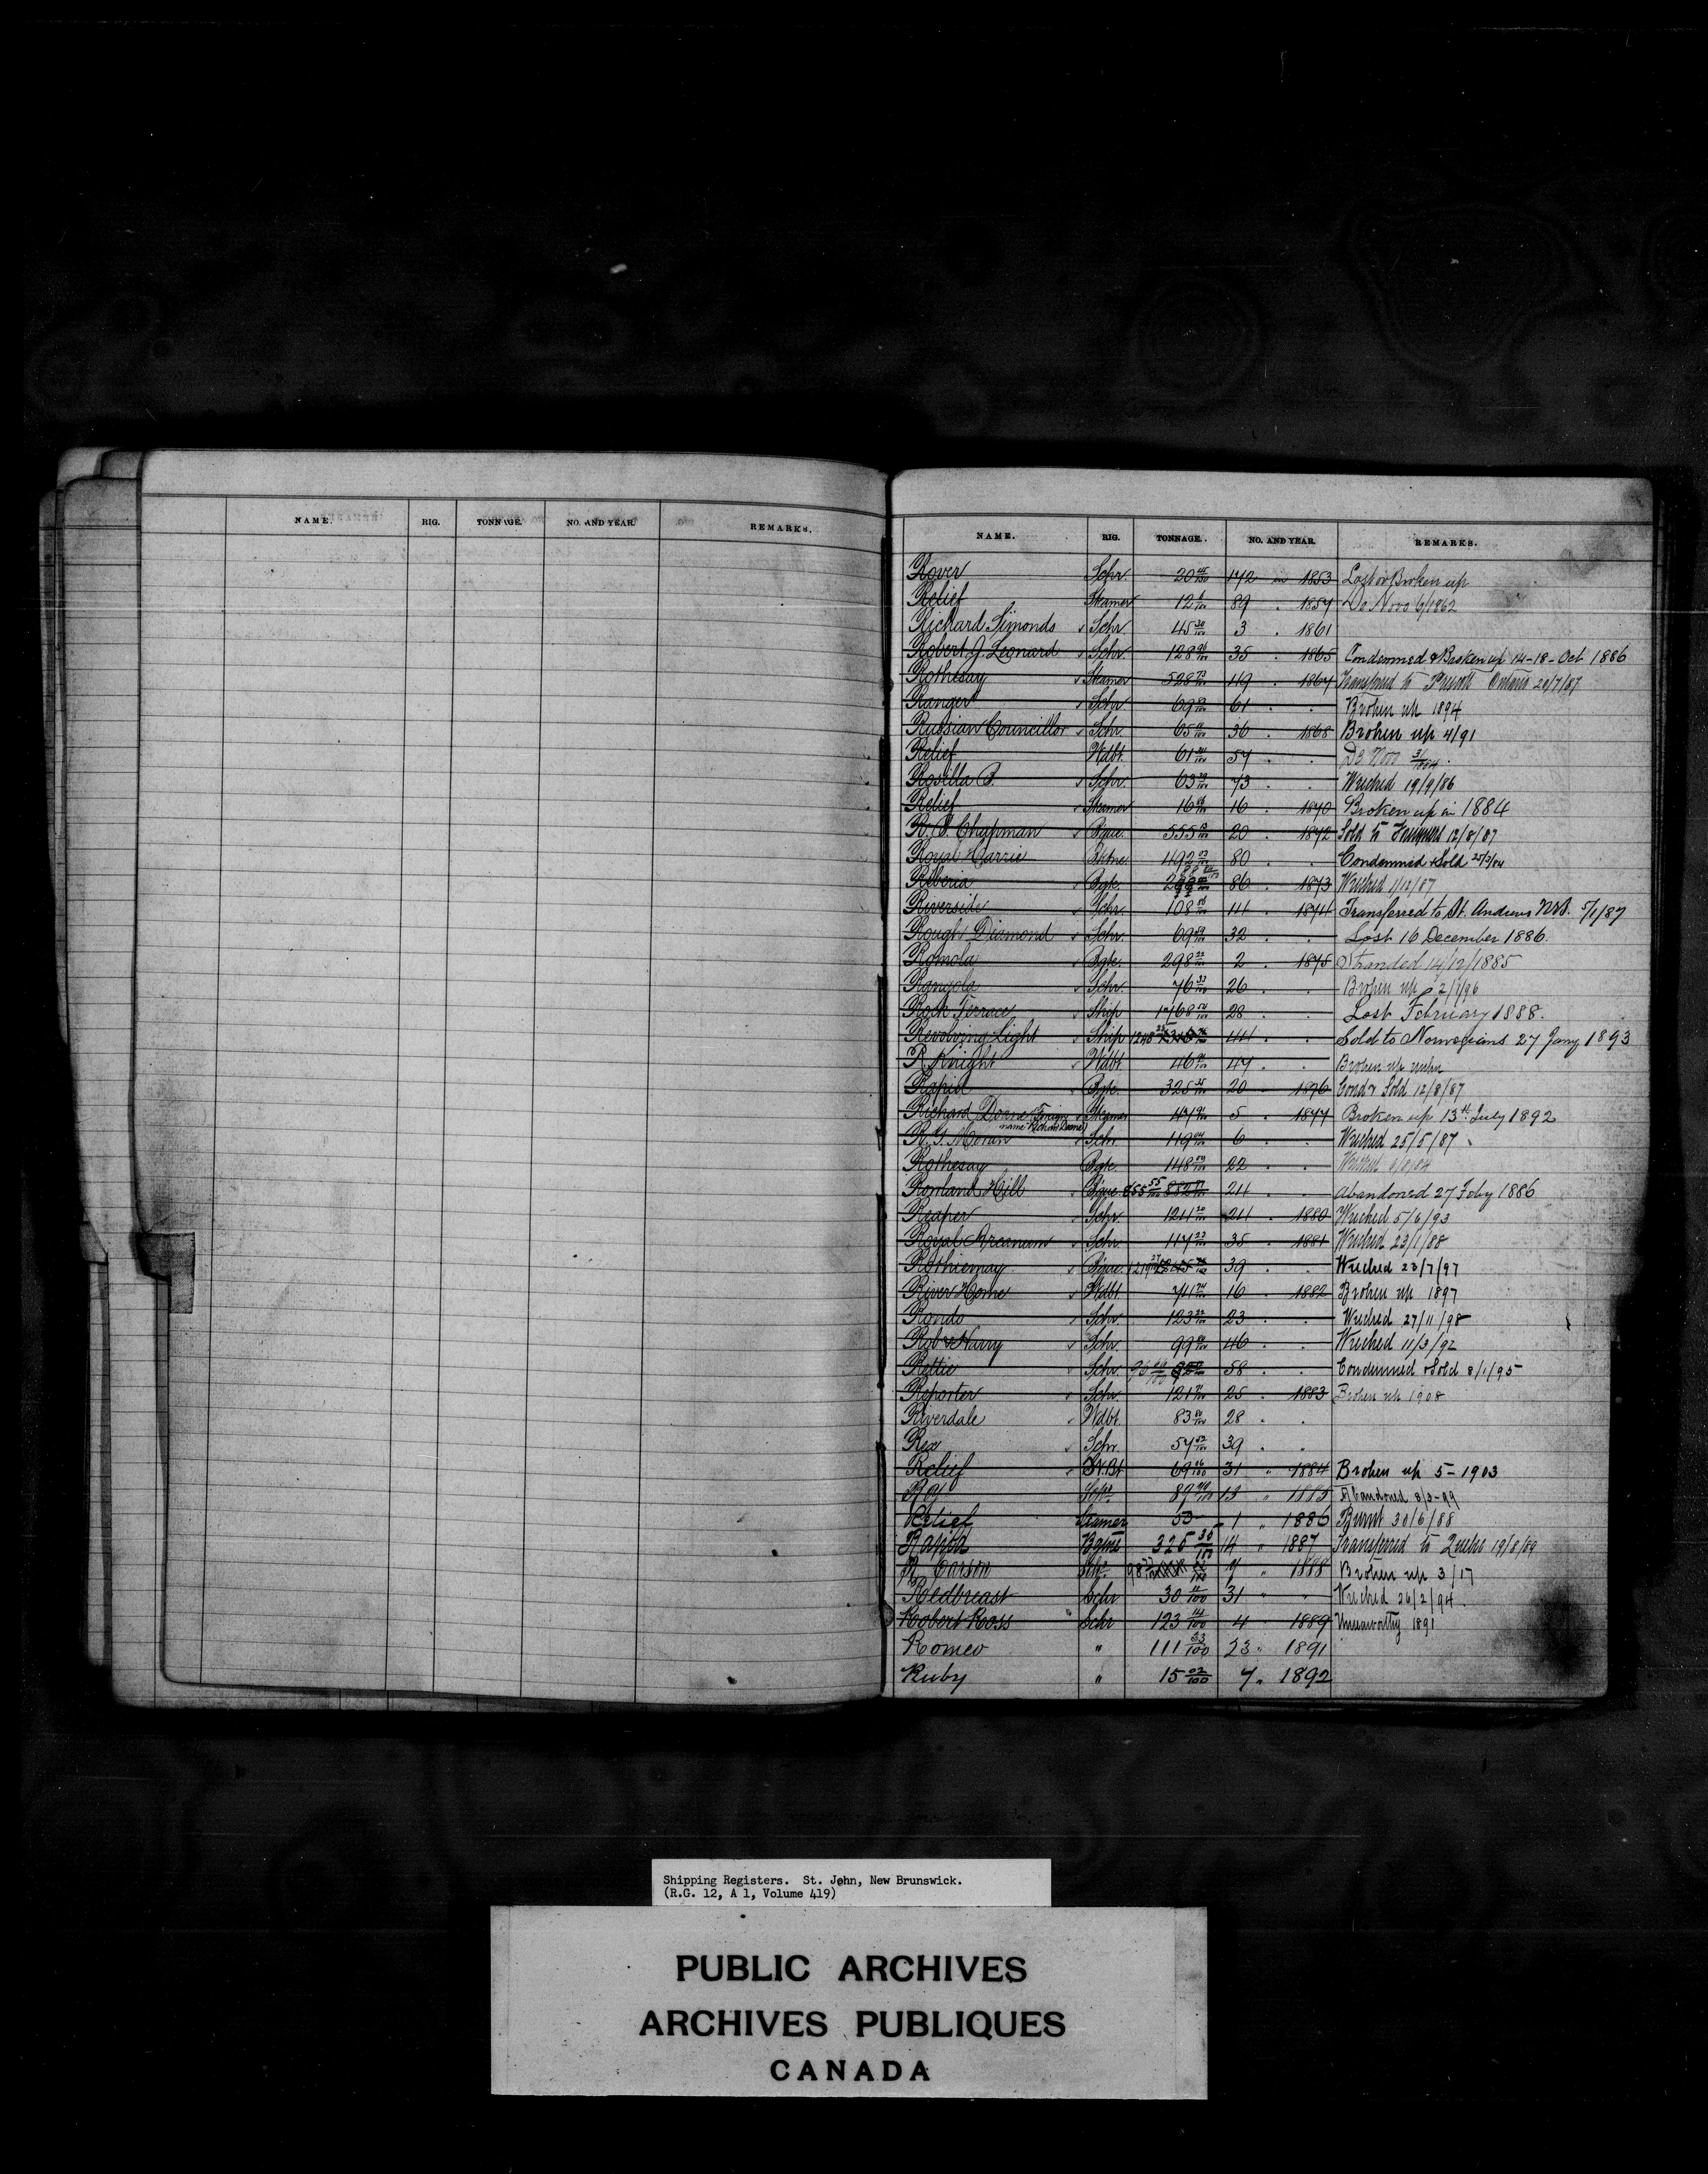 NAME. RIG. TONNAGE. NO. AND YEAR. REMARKS.
NAME. RIG. TONNAGE. NO. AND YEAR. REMARKS.
Rover Schr. 20 45/100 142 in 1853 Lost or Broken up
Relief Steamer 12 89 . 1854 De Novo 6/1862
Richard Simonds Schr. 45 30/100 3 . 1861
Robert J. Leonard Schr. 128 35 . 1865 Condemned & Broken up 14-18-Oct 1886
Rothesay Steamer 528 119 . 1867 Transferred to Prescott Ontario 20/7/87
Ranger Schr. 69 61 . . Broken up 1894
Russian Councillor Schr. 65 36 . 1868 Broken up 4/91
Relief Wdbt. 61 57 . . De Novo
Rosilla B. Schr. 63 73 . . Wrecked 19/9/86
Relief Steamer 16 16 . 1870 Broken up in 1884
R. B. Chapman Bque. 555 20 . 1872 Sold to 12/8/87
Royal Harrie Bktne 492 80 . . Condemned & Sold
Riberia Bgte. 86 . 1873 Wrecked 1/12/87
Riverside Schr. 108 111 . 1874 Transferred to St. Andrews N.B. 5/1/87
Rough Diamond Schr. 69 32 . . Lost 16 December 1886.
Romola Bgte. 298 22/100 2 . 1875 Stranded 14/12/1885
Rangola Schr. 76 33/100 26 . . Broken up 2/1/96
Rock Terrace Ship 1768 28 . . Lost February 1888.
Revolving Light Ship 1248 44 . . Sold to Norwegians 27 Jany 1893
R Knight Wdbt. 46 47 . . Broken up
Rapid Bgte. 325 35/100 20 . 1876 Cond & Sold 12/8/87
Richard Doane (Foreign Steamer 47 5 . 1877 Broken up 13th July 1892
name Richard Doane)
R. G. Moran Schr. 119 04/100 6 . . Wrecked 25/5/87
Rothesay Bgte. 148 22 . . Wrecked
Rowland Hill Bque 855 55/100 24 . . abandoned 27 Feby 1886
Reaper Schr. 124 24 . 1880 Wrecked 5/6/93
Royal Arcanum Schr. 117 23/100 35 . 1881 Wrecked 23/1/88
Rothiemay Bque. 1219 39 . . Wrecked 23/7/97
River Home Wdbt. 74 16 . 1882 Broken up 1897
Rondo Schr. 123 22/100 23 . . Wrecked 27/11/98
Rob & Harry Schr. 99 46 . . Wrecked 11/3/92
Rettie Schr. 58 . . Condemned & Sold 8/1/95
Reporter Schr. 121 25 . 1883 Broken up 1908
Riverdale Wdbt. 83 28 . .
Rex Schr. 57 39 . .
Relief St.Bt 69 31 " 1884 Broken up 5-1903
Schr. 89 13 " 1885 Abandoned 8/3-99
Relief Steamer 50 1 " 1886 Burnt 30/6/88
Rapid Bgtne 325 35/100 14 " 1887 Transferred to Quebec 19/8/89
R Carson Schr. 98 7 " 1888 Broken up 3/17
Redbreast Schr 30 11/100 31 " " Wrecked 26/2/94.
Robert Ross Schr 123 14/100 4 1889 Unseaworthy 1891
Romeo " 111 33/100 23 " 1891
Ruby " 15 02/100 7 " 1892
Shipping Registers. St. John, New Brunswick.
(R.G. 12, A 1, Volume 419)
PUBLIC ARCHIVES
ARCHIVES PUBLIQUES
CANADA